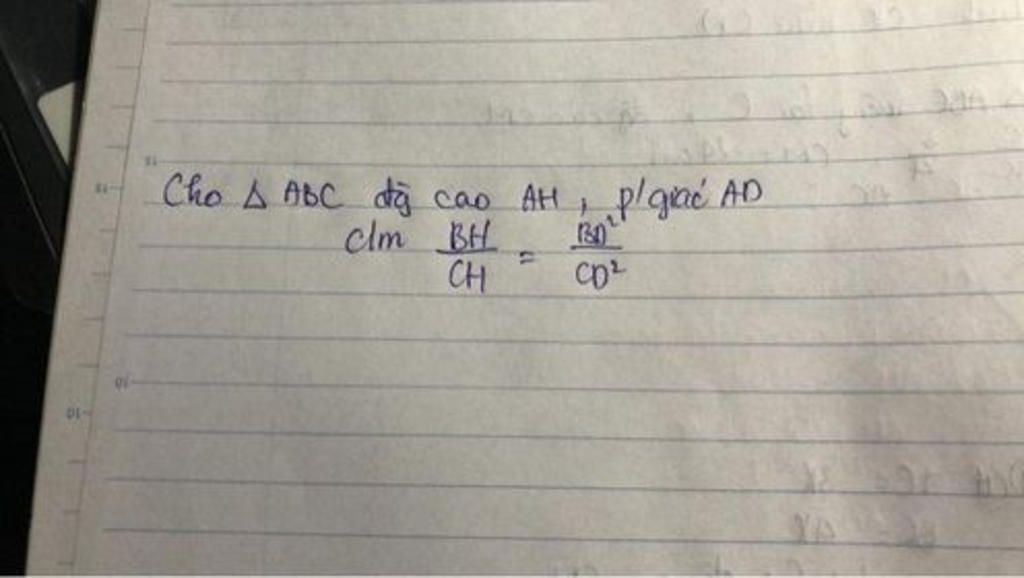 Cho Δ ABC đg cao AH, p/giác AD
Clm BH/CH = BD²/CD²